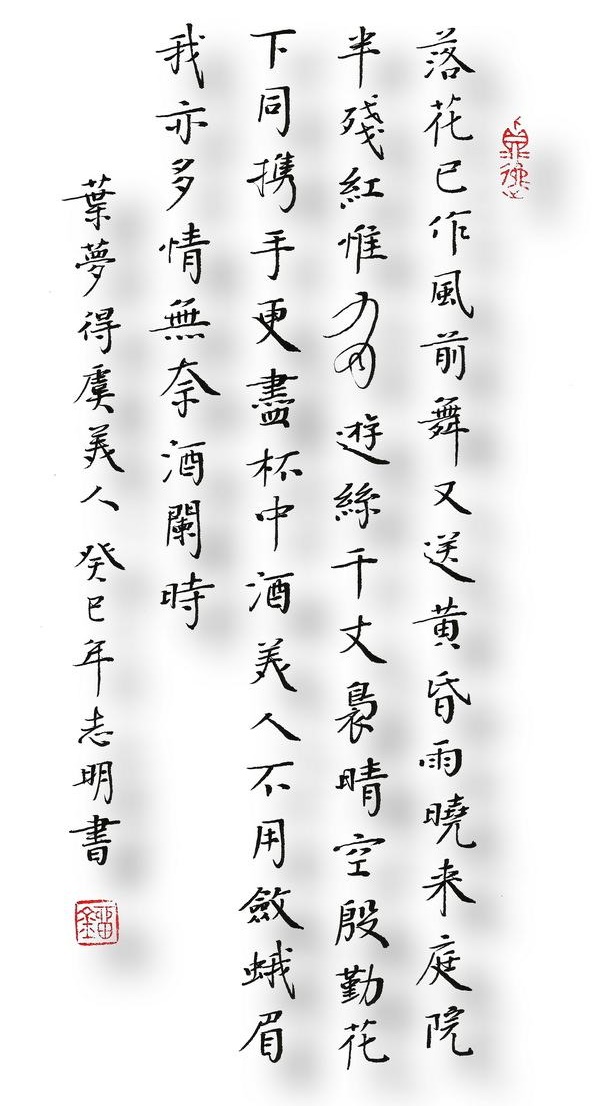 落花已作風前舞又送黄昏雨曉来庭院
半殘紅惟有遊絲千丈裊晴空殷勤花
下同携手更盡杯中酒美人不用斂蛾眉
我亦多情無奈酒闌時
葉夢得虞美人 癸巳年志明書